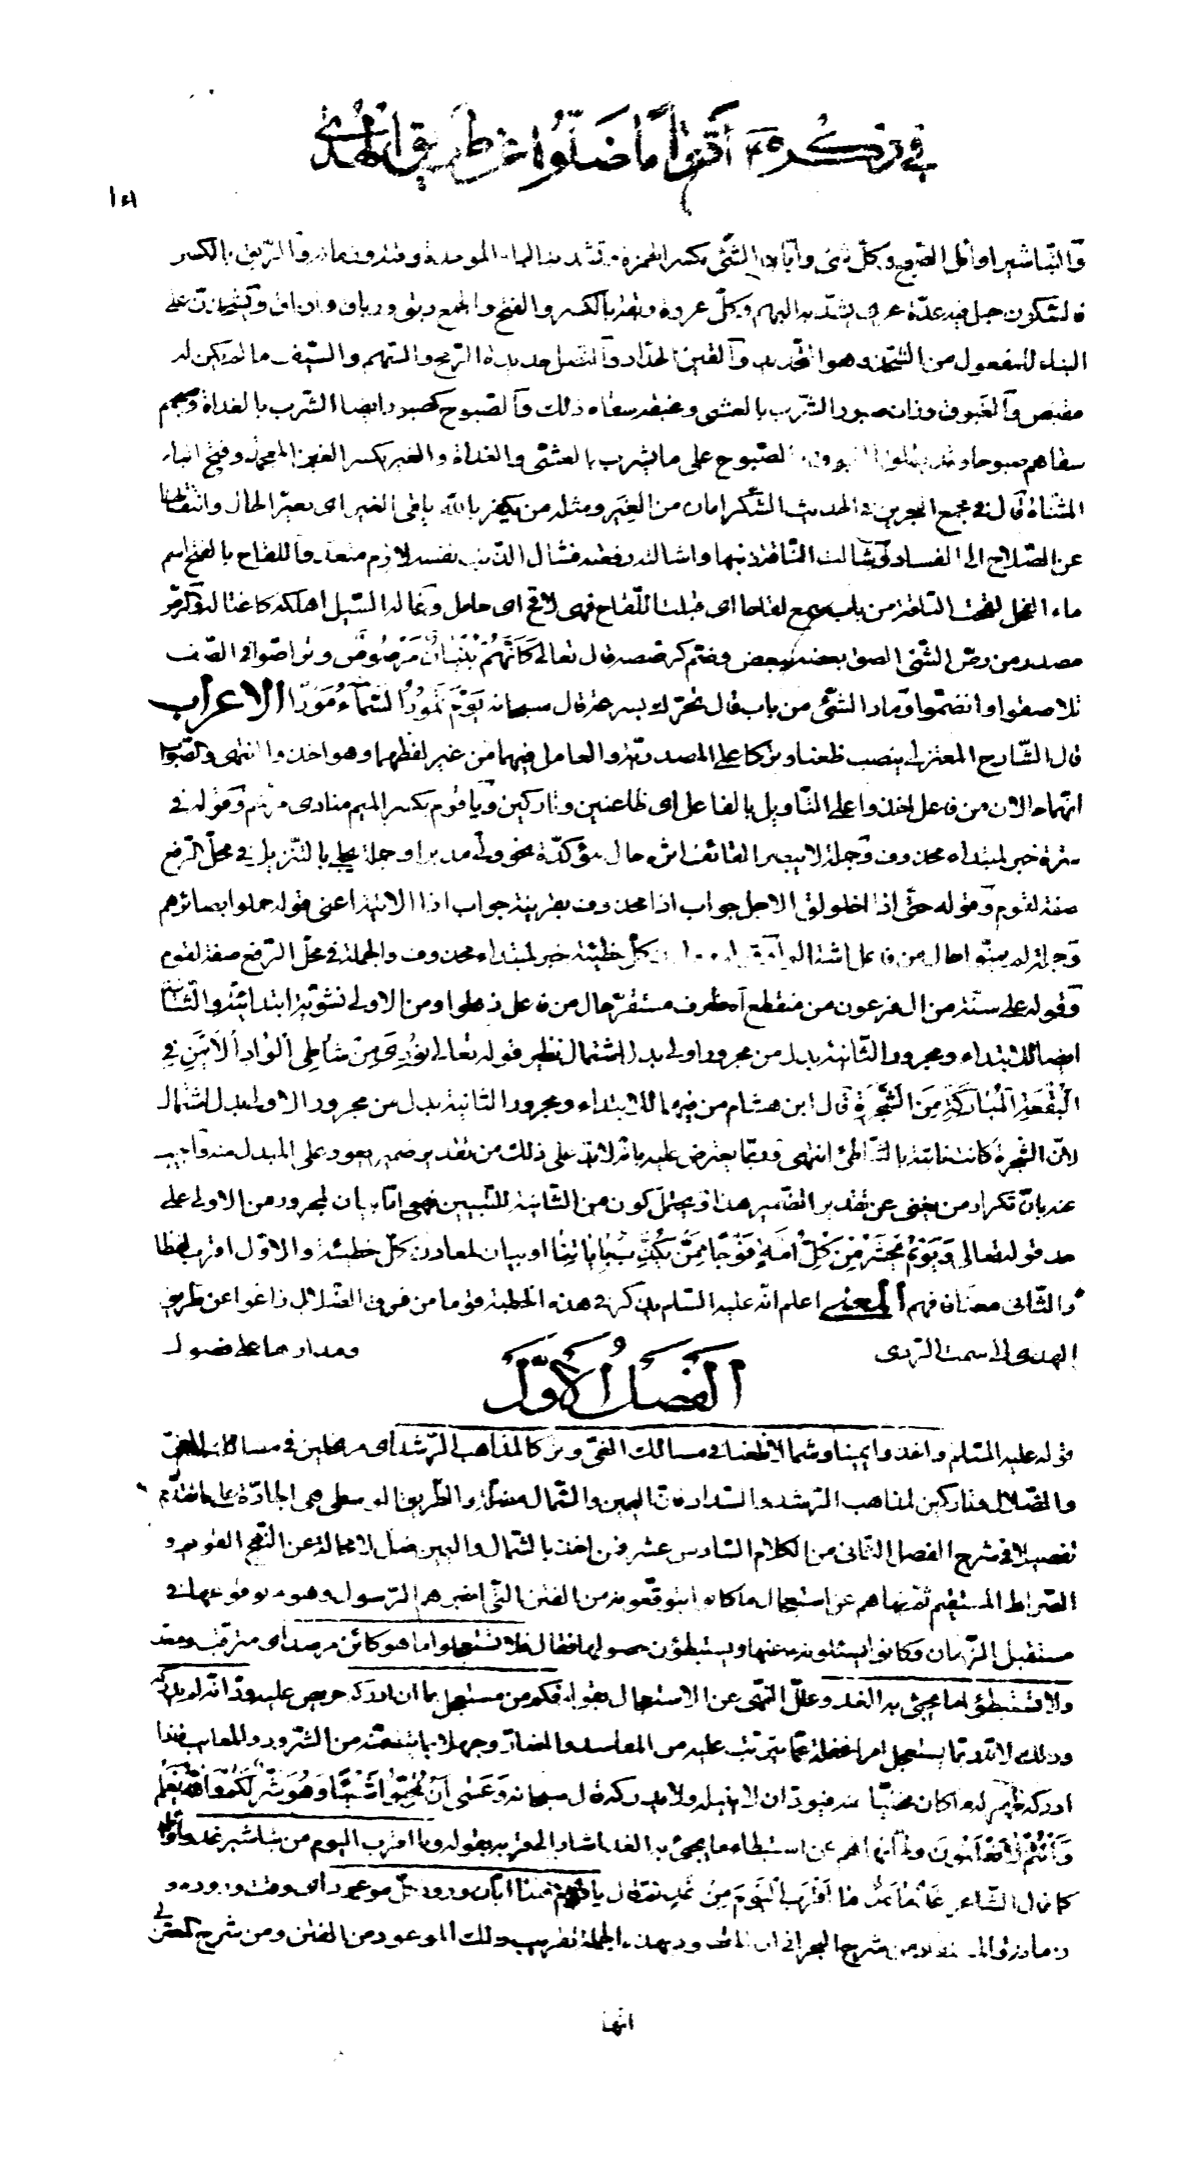 في ذكره أقواما ضلّوا عن طريق الهدى
١٥١
والتباشير اوائل الصبح وكلّ شئ وابّان الشّئ بكسر الهمزة وتشديد الباء الموحدة وقته وزمانه والرّبق بالكسر
فالسّكون حبل فيه عدّة عرى يشدّ به البهم وكلّ عروة ربقة بالكسر والفتح والجمع ربق ورباق وارباق وليشحذنّ على
البناء للمفعول من الشّحذ وهو التّحديد والقين الحدّاد والنّصل حديدة الرّمح والسّهم والسّيف ما لم يكن له
مقبض والغبوق وزان صبور الشّرب بالعشى وغبقه سقاه ذلك والصّبوح كصبور ايضا الشّرب بالغداة وصبحهم
سقاهم صبوحا وقد يطلق الغبوق والصّبوح على ما يشرب بالعشىّ والغداة والغير بكسر الغين المعجمة وفتح الياء
المثنّاة قال في مجمع البحرين في الحديث الشّكر امان من الغِيَر ومثله من يكفر باللّه يلقى الغير اى تغيّر الحال وانتقالها
عن الصّلاح الى الفساد وشالت النّاقة ذنبها واشالته رفعته فشال الذّنب نفسه لازم متعدّ واللقاح بالفتح اسم
ماء الفحل لقحت النّاقة من باب سمع لقاحا اى قبلت اللّقاح فهى لاقح اى حامل وغاله السّيل اهلكه كاغتاله والرّصّ
مصدر من رصّ الشّئ الصق بعضه ببعض وضمّ كرصّصه قال تعالى كَاَنَّهُمْ بُنْيَانٌ مَرْصُوصٌ وتراصّوا في الصّف
تلاصقوا وانضمّوا ومار الشّئ من باب قال تحرّك بسرعة قال سبحانه يَوْمَ تَمُورُ السَّمَاءُ مَوْرًا الاعراب
قال الشّارح المعتزلي ينصب ظعنا وتركا على المصدريّة والعامل فيهما من غير لفظهما وهو اخذوا انتهى والصّواب
انّهما حالان من فاعل اخذوا على التّاويل بالفاعل اى ظاعنين وتاركين ويا قوم بكسر الميم منادى مرخّم وقوله في
سترة خبر لمبتداء محذوف وجملة لا يبصر القائف اثره حال مؤكدّة نحو ولّى مدبرا وجملة يجلى بالتّنزيل في محلّ الرّفع
صفة لقوم وقوله حتّى اذا اخلولق الاجل جواب اذا محذوف بقرينة جواب اذا الاتية اعنى قوله حملوا بصائرهم
وجملة لم يمنّوا حال من فاعل اشتالوا وقوله معادن كلّ خطيئة خبر لمبتداء محذوف والجملة في محلّ الرّفع صفة لقوم
وقوله على سنّة من ال فرعون من منقطع الخ ظرف مستقرّ حال من فاعل ذهلوا ومن الاولى نشويّة ابتدائيّة والثّانية
ايضا للابتداء ومجرور الثّانية بدل من مجرور اولى بدل اشتمال نظير قوله تعالى نُودِىَ مِنْ شَاطِئِ الْوَادِ الْاَيْمَنِ فِي
الْبُقْعَةِ الْمُبَارَكَةِ مِنَ الشَّجَرَةِ قال ابن هشام من فيهما للابتداء ومجرور الثانية بدل من مجرور الاولى بدل اشتمال
لانّ الشّجرة كانت نابتة بالشّاطئ انتهى وربّما يعترض عليه بانّه لابدّ على ذلك من تقدير ضمير يعود على المبدل منه واجيب
عنه بانّ تكرار من يغنى عن تقدير الضّمير هذا ويحتمل كون من الثّانية للتّبيين فهى امّا بيان لمجرور من الاولى على
حدّ قوله تعالى وَيَوْمَ نَحْشُرُ مِنْ كُلِّ اُمَّةٍ فَوْجًا مِمَّنْ يُكَذِّبُ بِاٰيَاتِنَا او بيان لمعادن كلّ خطيئة والاوّل اقرب لفظا
والثّانى معنًا فافهم المعنى اعلم انّه عليه السّلم يذكر في هذه الخطبة قوما من فرق الضّلال زاغوا عن طريق
الهدى الى سمت الرّدى ومدارها على فصول
الفصل الأوّل
قوله عليه السّلم واخذوا يمينا وشمالا ظعنا في مسالك الغىّ وتركا لمذاهب الرّشد اى مرتحلين في مسالك الغىّ
والضّلال وتاركين لمذاهب الرّشد والسّداد فانّ اليمين والشّمال مضلّة والطّريق الوسطى هى الجادّة على ما تقدّم
تفصيلا في شرح الفصل الثّانى من الكلام السّادس عشر فمن اخذ بالشّمال واليمين ضلّ لا محالة عن النّهج القويم و
الصّراط المستقيم ثمّ نهاهم عن استعجال ما كانوا يتوقّعونه من الفتن الّتى اخبرهم الرّسول وهو م بوقوعها في
مستقبل الزّمان وكانوا يسئلونه عنها ويستبطؤن حصولها فقال فلا تستعجلوا ما هو كائن مرصد اى مترقّب ومعدّ
ولا تستبطؤا ما يجئ به الغد وعلّل النّهى عن الاستعجال بقوله فكم من مستعجل بما ان ادركه حريص عليه ودّ انّه لم يدركه
وذلك لانّه ربّما يستعجل امرا غفلة عمّا يترتّب عليه من المفاسد والمضارّ وجهلا بما يتضمّنه من الشّرور والمعايب فاذا
ادركه ظهر له ما كان مختبئا عنه فيودّ ان لا يناله ولا يدركه قال سبحانه وَعَسٰى اَنْ تُحِبُّوا شَيْئًا وَهُوَ شَرٌّ لَكُمْ وَاللّٰهُ يَعْلَمُ
وَاَنْتُمْ لَا تَعْلَمُونَ ولمّا نهاهم عن استبطاء ما يجئ به الغد اشار الى قربه بقوله وما اقرب اليوم من تباشير غد واوائله
كما قال الشّاعر غَدٌ مَا غَدٌ مَا اَقْرَبَ الْيَوْمَ مِنْ غَدٍ ثمّ قال يا قوم هذا ابّان ورود كلّ موعود اى وقت وروده و
زمانه والمستفاد من شرح البحرانى انّ المقصود بهذه الجملة تقريب ذلك الموعود من الفتن ومن شرح المعتزلى
انّها